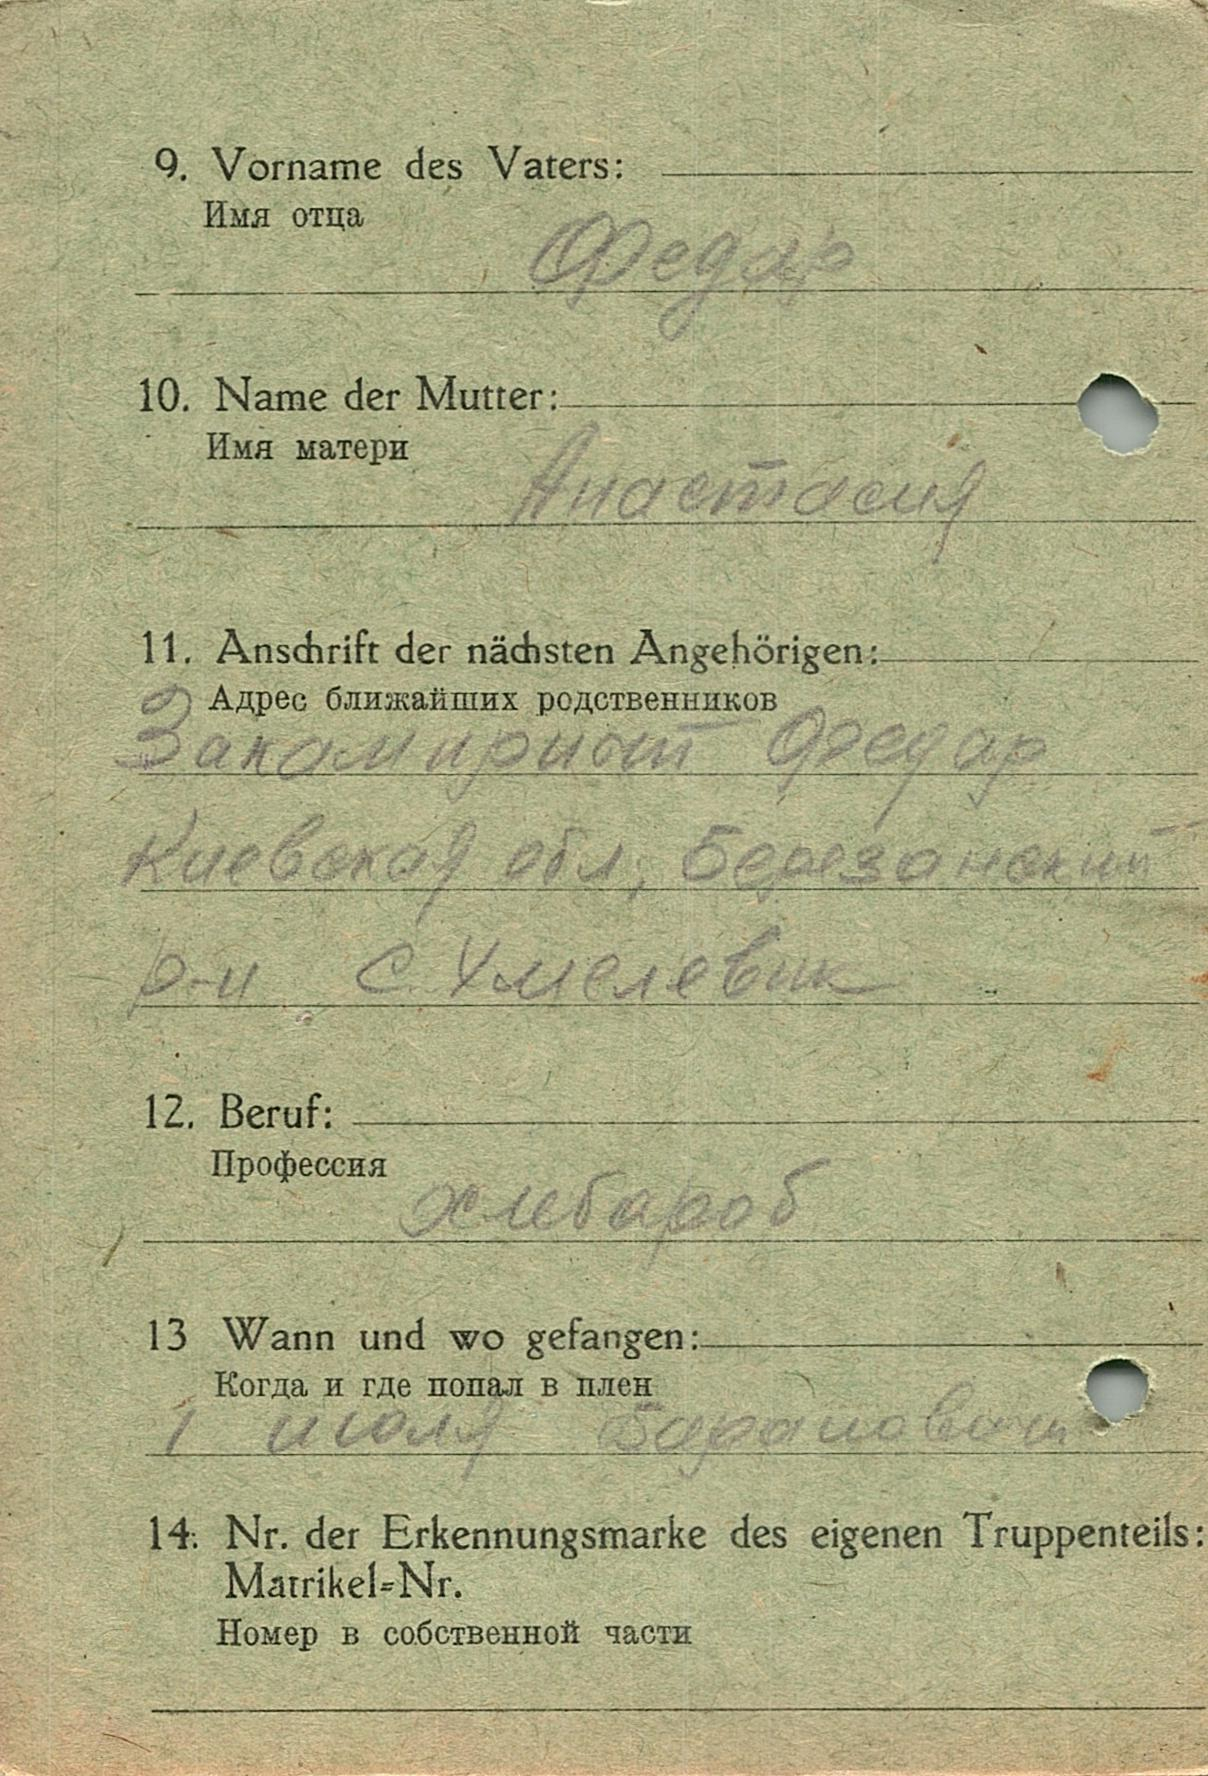 9. Vorname des Vaters:
Имя отца
Федар
10. Name der Mutter:
Имя матери
Анастасия
11. Anschrift der nächsten Angehörigen:
Адрес ближайших родственников
Закамирный Федар
Киевская обл, Березанский
р-н с. Хмелевик
12. Beruf:
Профессия
хлебароб
13 Wann und wo gefangen:
Когда и где попал в плен
1 июля
14. Nr. der Erkennungsmarke des eigenen Truppenteils:
Matrikel-Nr.
Номер в собственной части